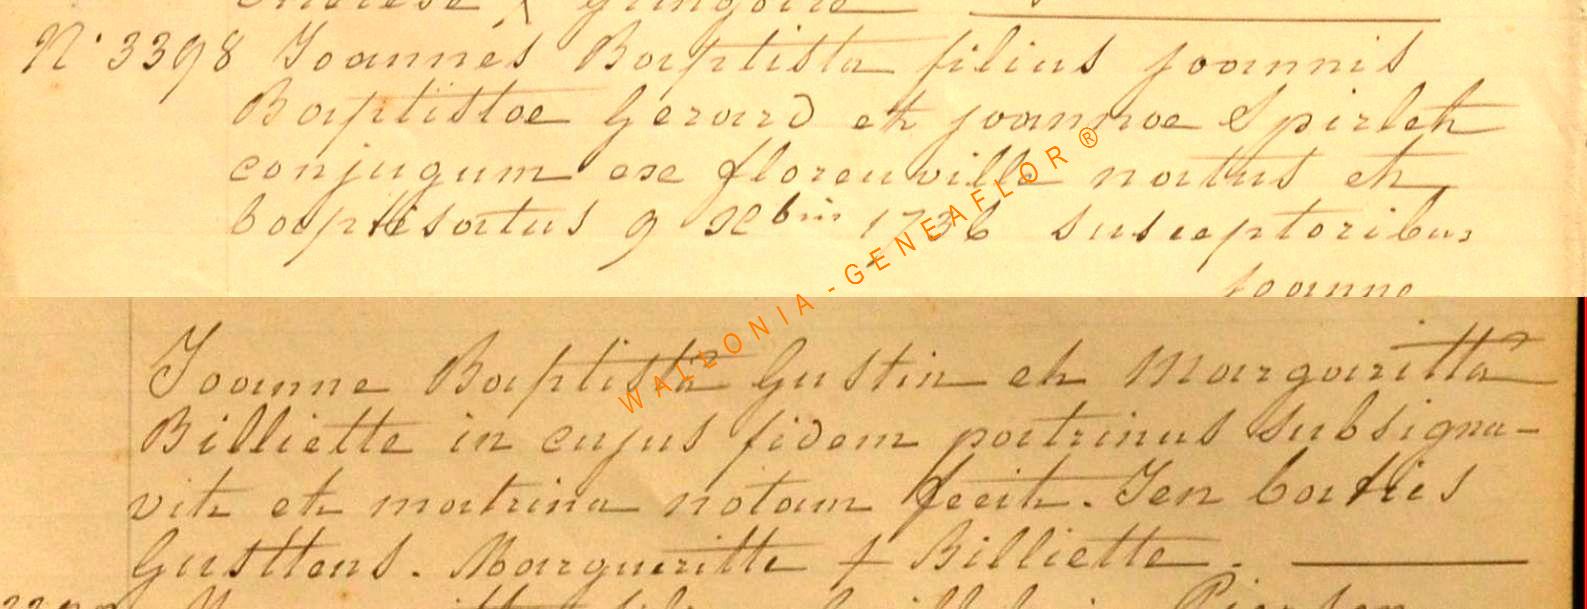 N° 3398 Joannes Baptista filius joannis
Baptistae Gerard et joannae Spirlet
conjugum ex florenville natus et
baptisatus 9 Xbris 1736 susceptoribus
Joanne
WALLONIA - GENEAFLOR ®
Joanne Baptista Gustin et Margaritta
Billiette in cujus fidem patrinus subsigna-
vit et matrina notam fecit. Jen batis
Gusttens. Margueritte + Billiette.